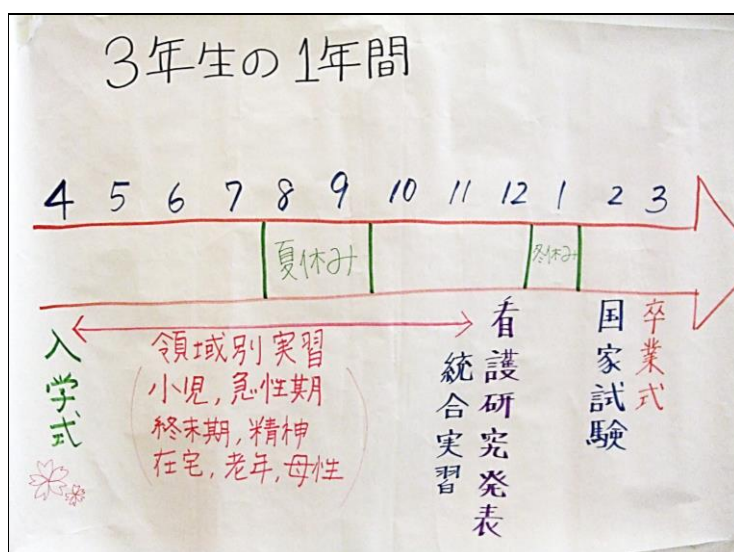 3年生の1年間
4 5 6 7 8 9 10 11 12 1 2 3
夏休み
冬休み
入学式
領域別実習
(小児,急性期
終末期,精神
在宅,老年,母性)
統合実習
看護研究発表
国家試験
卒業式